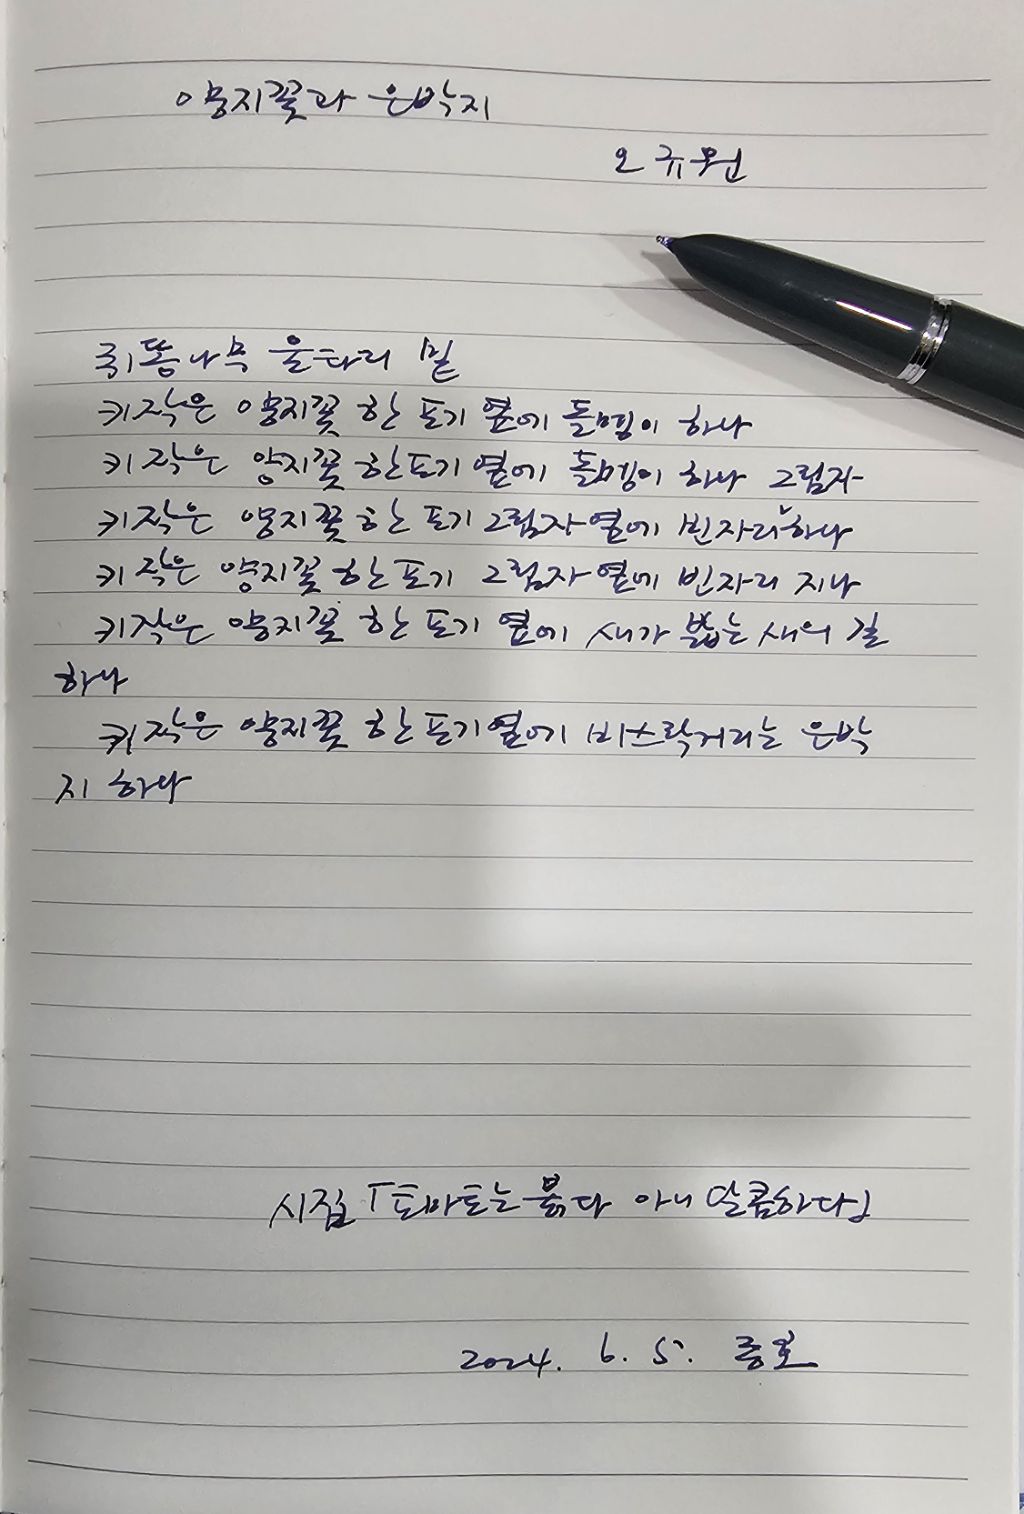 양지꽃과 은박지
오규원
쥐똥나무 울타리 밑
키작은 양지꽃 한 포기 옆에 돌멩이 하나
키작은 양지꽃 한 포기 옆에 돌멩이 하나 그림자
키작은 양지꽃 한 포기 그림자 옆에 빈자리 하나
키작은 양지꽃 한 포기 그림자 옆에 빈자리 지나
키작은 양지꽃 한 포기 옆에 새가 밟는 새의 길
하나
키작은 양지꽃 한 포기 옆에 바스락거리는 은박
지 하나
시집 「토마토는 붉다 아니 달콤하다」
2024. 6. 5.